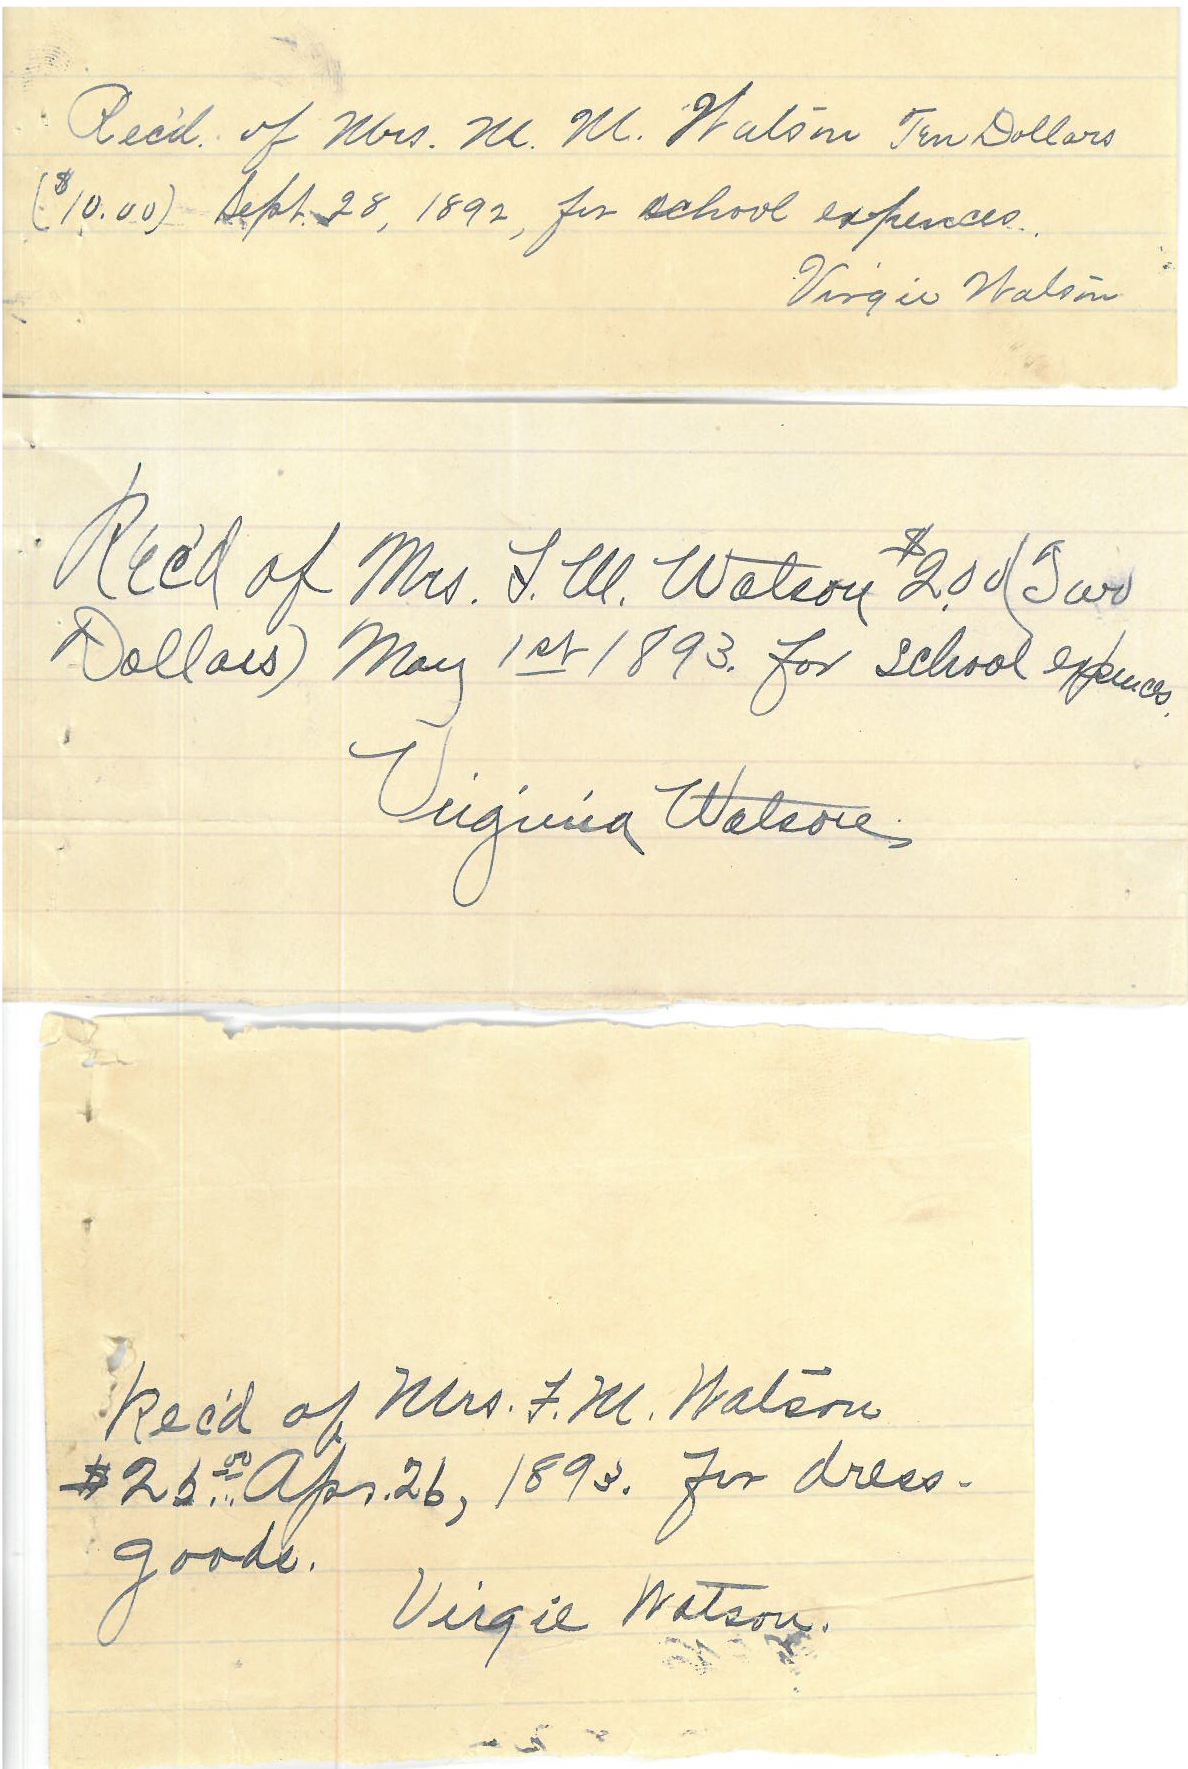 Rec'd. of Mrs. M. M. Watson Ten Dollars
($10.00) Sept. 28, 1892, for school expences.
Virgie Watson
Rec'd of Mrs. F. M. Watson $2.00 (Two
Dollars) May 1st 1893. for school expences.
Virginia Watson
Rec'd of Mrs. F. M. Watson
Apr. 26, 1893. for dress-
goods.
Virgie Watson.